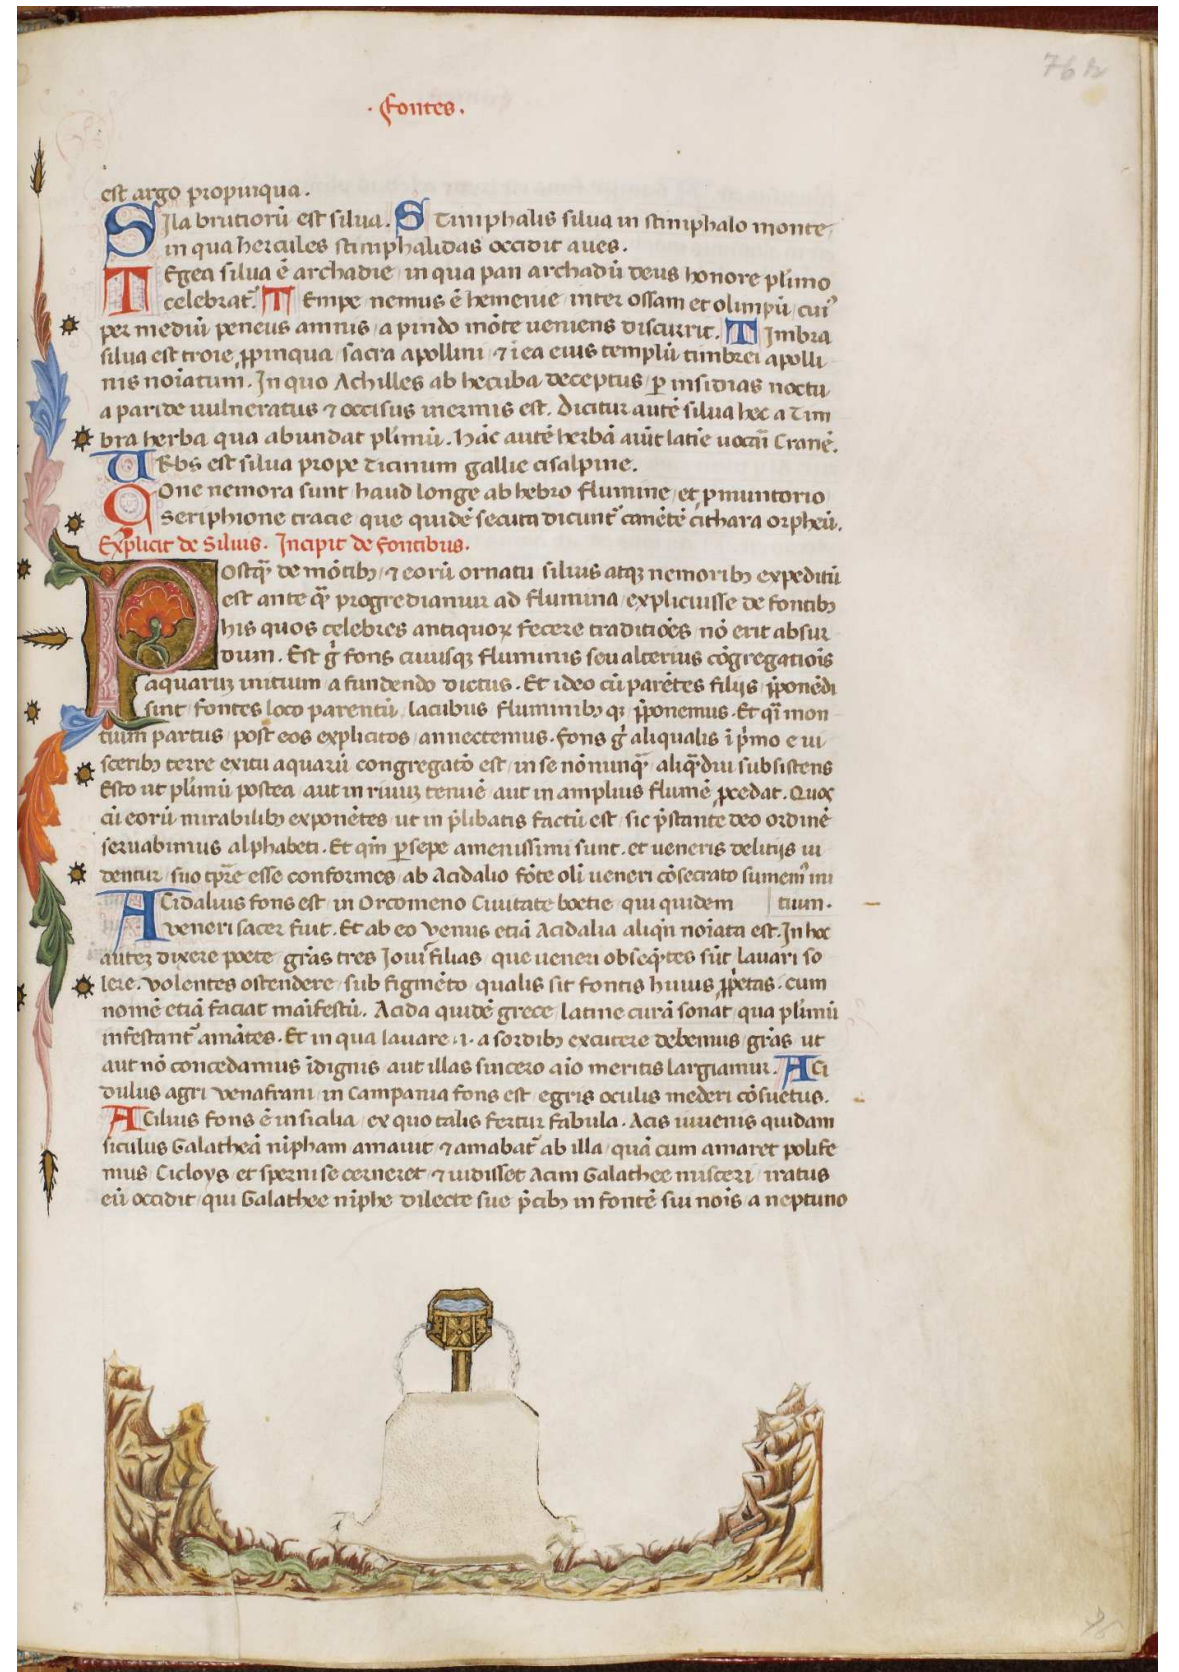 76 r
· Fontes ·
est argo propinqua.
SJla brutiorū est silua. Stimphalis silua in stimphalo monte,
in qua hercules stimphalidas occidit aues.
TEgea silua ē archadie in qua pan archadū deus honore pl'imo
celebrat᷑. TEmpe nemus ē hemenie inter ossam et olimpū, cui᷒
per mediū peneus amnis, a pindo mōte ueniens discurrit. Timbra
silua est troie ꝓpinqua, sacra apollini, ⁊ ī ea eius templū timbrei apolli
nis noīatum. In quo Achilles ab hecuba deceptus, ꝑ insidias noctu
a paride uulneratus ⁊ occisus inermis est. Dicitur autē silua hec a tim
bra herba qua abundat pl'imū. hāc autē herbā aiūt latīe uocari Cranē.
URbs est silua prope ticinum gallie cisalpine.
ZOne nemora sunt haud longe ab hebro flumine, et ꝓmuntorio
Seriphione tracie que quidē secuta dicunt᷑ canētē cithara orpheū.
Explicit de Siluis. Incipit de fontibus.
POstq̄ de mōtibꝫ ⁊ eorū ornatu siluis atqꝫ nemoribꝫ expeditū
est ante q̄ progrediamur ad flumina, expliciuisse de fontibꝫ
his quos celebres antiquoꝝ fecere traditiōes, nō erit absur
dum. Est g̊ fons cuiusqꝫ fluminis seu alterius cōgregatiōis
aquarum initium, a fundendo dictus. Et ideo cū parētes filijs p̄ponēdi
sint, fontes loco parentū, lacubus fluminibꝫ qꝫ p̄ponemus. Et qī mon
tium partus, post eos explicitos, annectemus. fons g̊ aliqualis ī p̄mo e ui
sceribꝫ terre exitu aquarū congregatō est, in se nōnunq̄, aliq̄diu subsistens
Esto ut pl'imū postea, aut in riuum tenuē, aut in amplius flumē ꝓcedat. Quoꝝ
cū eorū mirabilibꝫ exponētes, ut in p̄libatis factū est, sic p̄stante deo ordinē
seruabimus alphabeti. Et qm̄ ꝑsepe amenissimi sunt, et ueneris delitijs ui
dentur, suo tꝑre esse conformes, ab Acidalio fōte oli᷑ ueneri cōsecrato sumem᷒ ini
ACidalius fons est, in Orcomeno Ciuitate boetie, qui quidem tium.
ueneri sacer fuit. Et ab eo Venus etiā Acidalia aliqn̄ noīata est. In hoc
autem dixere poete, gr̄as tres Joui᷒ filias, que ueneri obseq̄tes sūt, lauari so
lere. Volentes ostendere, sub figmēto, qualis sit fontis huius ꝓprietas. cum
nomē etiā faciat maīfestū. Acida quidē grece, latine curā sonat, qua pl'imū
infestant᷑ amātes. Et in qua lauare .i. a sordibꝫ excutere debemus, gr̄as, ut
aut nō concedamus īdignis aut illas sincero aīo meritis largiamur. ACi
dulus agri Venafrani, in Campania fons est, egris oculis mederi cōsuetus.
ACilius fons ē in sicilia, ex quo talis fertur fabula. Acis iuuenis quidam
siculus Galatheā nīpham amauit, ⁊ amabat᷑ ab illa, quā cum amaret polife
mus, Cicloys, et sperni se cerneret, ⁊ uidisset Acim Galathee misceri, iratus
eū occidit, qui Galathee nīphe dilecte sue p̄cibꝫ in fontē sui nois a neptuno